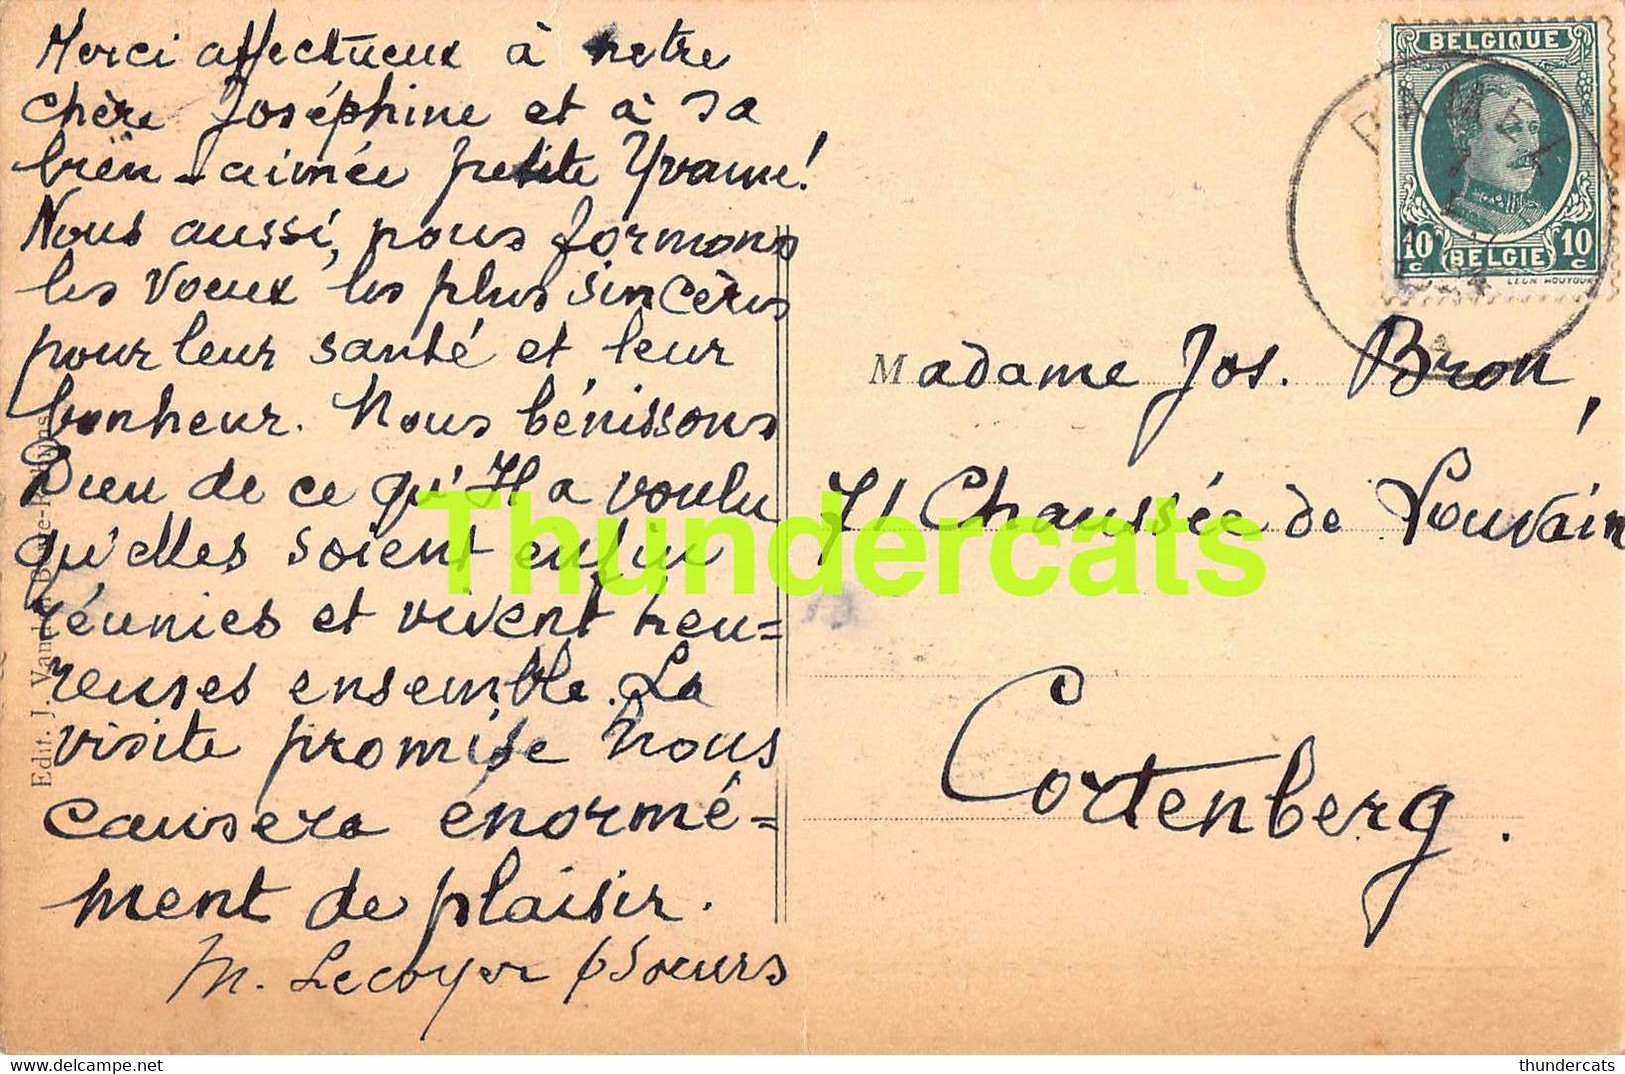 Merci affectueux à notre
chère Joséphine et à sa
bien-aimée petite Yvonne!
Nous aussi, nous formons
les voeux les plus sincères
pour leur santé et leur
bonheur. Nous bénissons
Dieu de ce qu'Il a voulu
qu'elles soient enfin
réunies et vivent heu=
reuses ensemble. La
visite promise nous
causera énormé=
ment de plaisir.
M. Lecoyer Soeurs
Edit. J.
BELGIQUE
10 c BELGIE 10 c
LEON HOUYOUX
Madame Jos. Bron,
71 Chaussée de Louvain
Cortenberg.
Thundercats
thundercats
www.delcampe.net